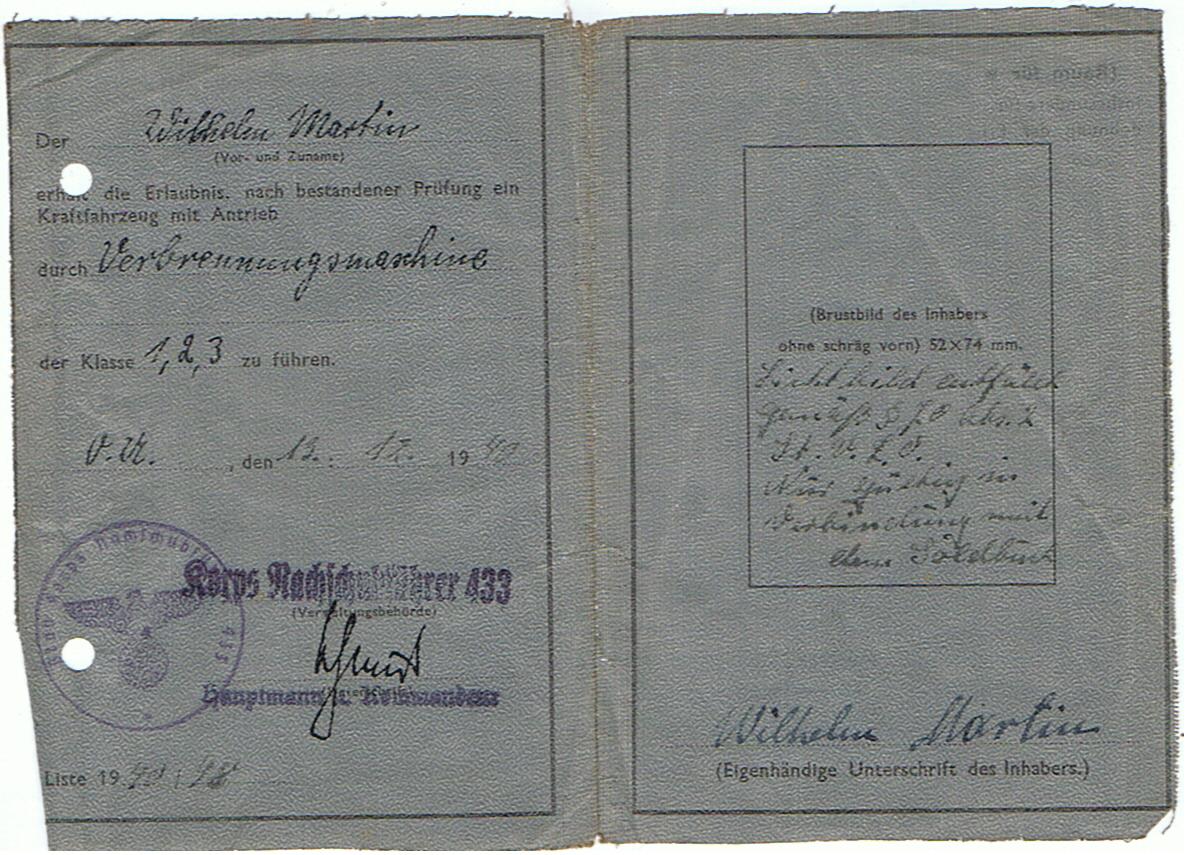 Der Wilhelm Martin
(Vor- und Zuname)
erhält die Erlaubnis, nach bestandener Prüfung ein
Kraftfahrzeug mit Antrieb
durch Verbrennungsmaschine
der Klasse 1, 2, 3 zu führen.
O.U. , den 12. 19 40
Korps Nachschubführer 433
(Verwaltungsbehörde)
Hauptmann u. Kommandeur
433
Liste 19 40
(Brustbild des Inhabers
ohne schräg vorn) 52×74 mm.
Lichtbild entfällt
gemäß § Abs. 2
St. V. Z. O.
Nur gültig in
Verbindung mit
dem Soldbuch
Wilhelm Martin
(Eigenhändige Unterschrift des Inhabers.)